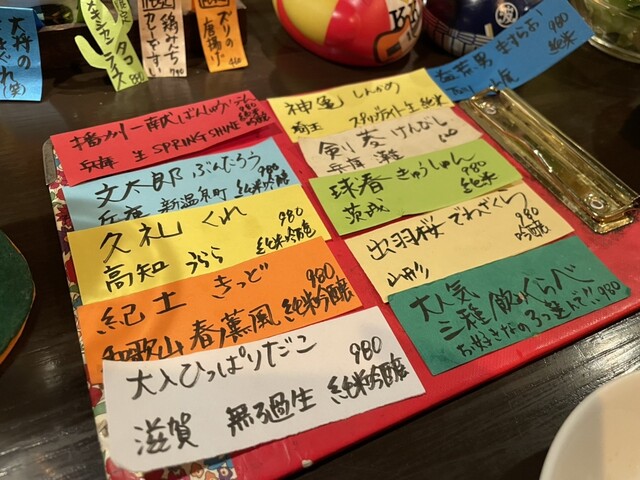 メキシカン
タコ
ライス
鶏みんち
カレーライス
ズリの
唐揚げ
播州一献 ばんしゅういっこん 980
純米
兵庫 生 SPRING SHINE
文太郎 ぶんたろう 980
兵庫 新温泉町 純米吟醸
久礼 くれ 980
高知 うらら 純米吟醸
紀土 きっど 980
和歌山 春薫風 純米吟醸
大入ひっぱりだこ 980
滋賀 無ろ過生 純米吟醸
神亀 しんかめ 980
埼玉 純米
剣菱 けんびし
兵庫 灘
球春 きゅうしゅん 980
茨城 純米
出羽桜 でわざくら 980
山形 吟醸
大人気
三種飲みくらべ
お好きなの3つ選んで!! 980
980
純米